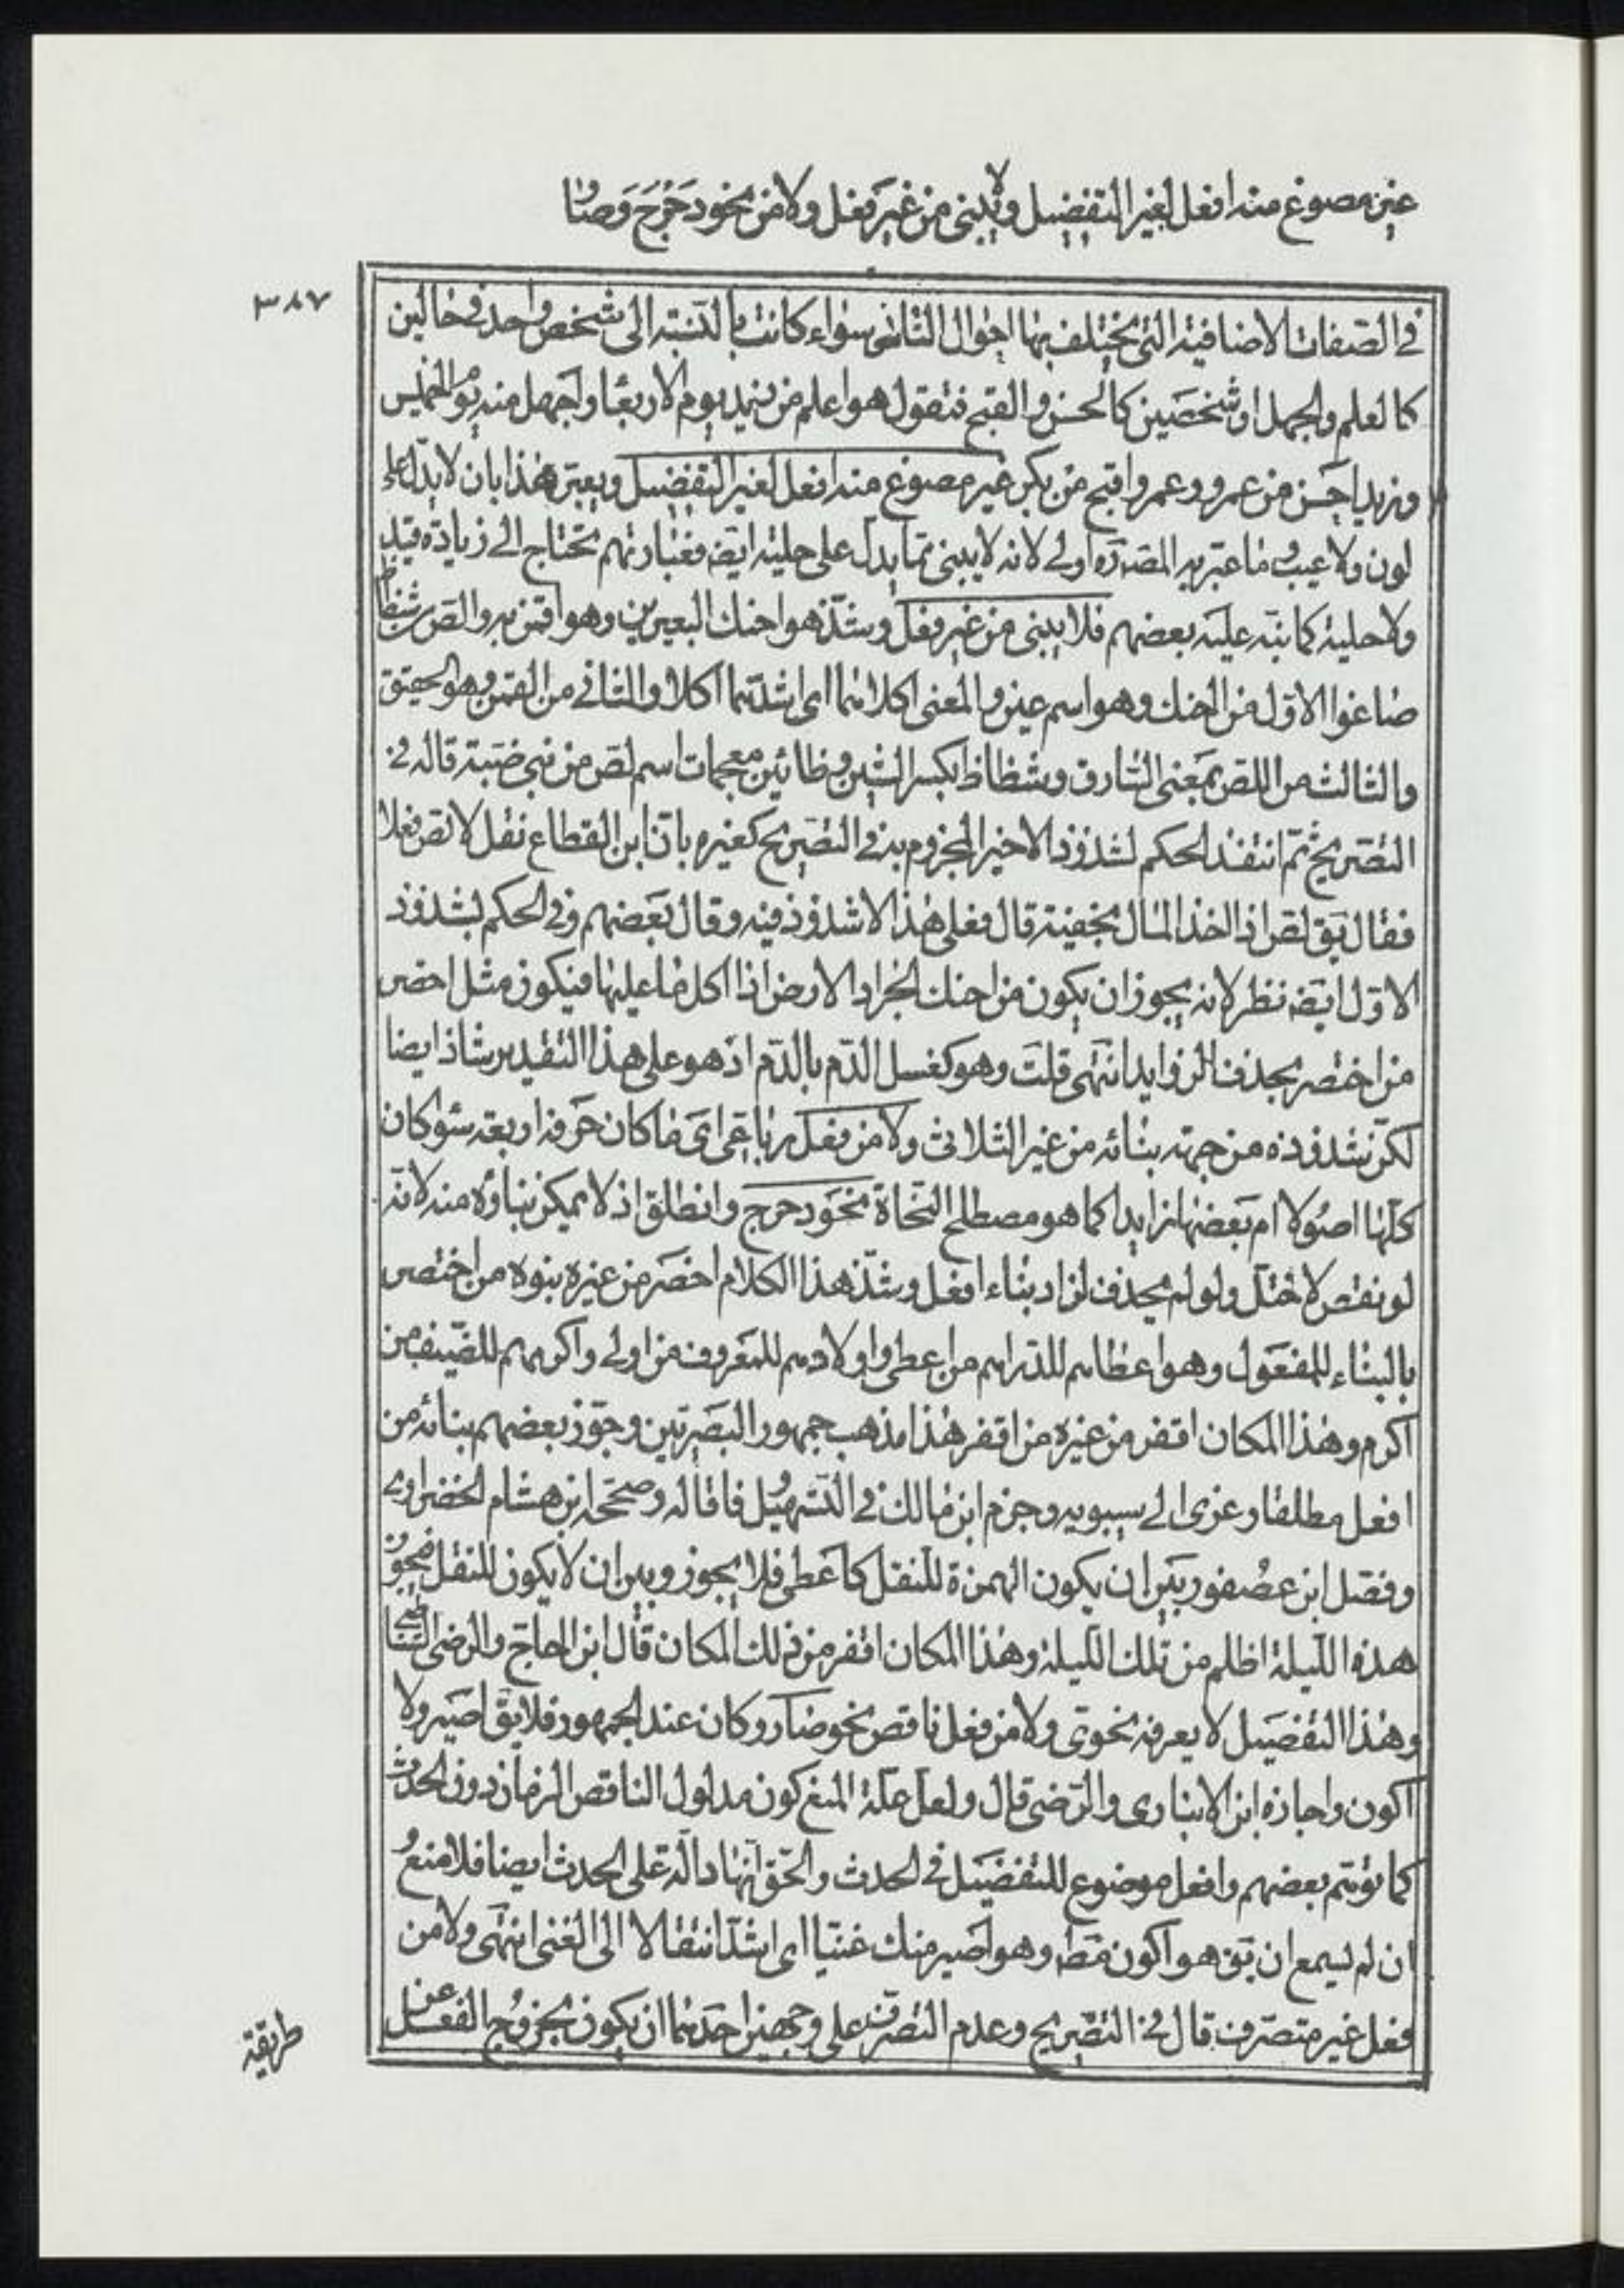 غير مصوغ منه افعل لغير التفضيل ولا يبنى من غير فعل ولا من نحو دحرج وصار
٣٨٧
في الصفات الاضافية التي يختلف بها احوال الناس سواء كانت بالنسبة الى شخص واحد في حالين
كالعلم والجهل او شخصين كالحسن والقبح فتقول هو اعلم من زيد يوم الاربعا واجهل منه يوم الخميس
وزيد احسن من عمرو وعمرو اقبح من بكر غير مصوغ منه افعل لغير التفضيل ويعبر هذا بان لا يدل على
لون ولا عيب وما عبر به المص ره اولى لانه لا يبنى مما يدل على حلية ايضه فعبارتهم تحتاج الى زيادة قيد
ولا حلية كما نبه عليه بعضهم فلا يبنى من غير فعل وشذ هو احنك البعيرين وهو اقمن به والص من شظاظ
صاغوا الاول من الحنك وهو اسم عين والمعنى اكلاهما اى اشدهما اكلا والثاني من القمن وهو الحقيق
والثالث من اللص بمعنى السارق وشظاظ بكسر الشين وظائين معجمات اسم لص من بني ضبة قاله في
التصريح ثم انتقد الحكم لشذوذ الاخير المجزوم به في التصريح كغيره بان ابن القطاع نقل لالص فعلا
فقال يق لص اذا اخذ المال بخفية قال فعلى هذا لا شذوذ فيه وقال بعضهم وفي الحكم بشذوذ
الاول ايضه نظر لانه يجوز ان يكون من احنك الجراد الارض اذا اكل ما عليها فيكون مثل اخصر
من اختصر بحذف الزوايد انتهى قلت وهو كغسل الدم بالدم اذ هو على هذا التقدير شاذ ايضا
لكن شذوذه من جهته بنائه من غير الثلاثي ولا من فعل رباعي اى ما كان حرفه اربعة سوا كان
كلها اصولا ام بعضها زايدا كما هو مصطلح النحاة نحو دحرج وانطلق اذ لا يمكن بناؤه منه لانه
لو نقص لاختل ولو لم يحذف لزاد بناء افعل وشذ هذا الكلام اخصر من غيره بنوه من اختصر
بالبناء للمفعول وهو اعطاهم للدراهم من اعطى واولادهم للمعروف من اولى واكرمهم للضيف من
اكرم وهذا المكان اقفر من غيره من اقفر هذا مذهب جمهور البصريين وجوز بعضهم بنائه من
افعل مطلقا وعزى الى سيبويه وجزم ابن مالك في التسهيل فا قاله وصححه ابن هشام الخضراوى
وفصل ابن عصفور بين ان يكون الهمزة للنقل كاعطى فلا يجوز وبين ان لا يكون للنقل فيجوز
هذه الليلة اظلم من تلك الليلة وهذا المكان اقفر من ذلك المكان قال ابن الحاج والرضى الشاطبى
وهذا التفضيل لا يعرفه نحوى ولا من فعل ناقص نحو صار وكان عند الجمهور فلا يق اصير ولا
اكون واجازه ابن الانبارى والرضى قال ولعل علة المنع كون مدلول الناقص الزمان دون الحدث
كما توهم بعضهم وافعل موضوع للتفضيل في الحدث والحق انها دالة على الحدث ايضا فلا منع
ان لم يسمع ان يق هو اكون منط وهو اصير منك غنيا اى اشد انتقالا الى الغنى انتهى ولا من
فعل غير متصرف قال في التصريح وعدم التصرف على وجهين احدهما ان يكون بخروج الفعل عن
طريقة